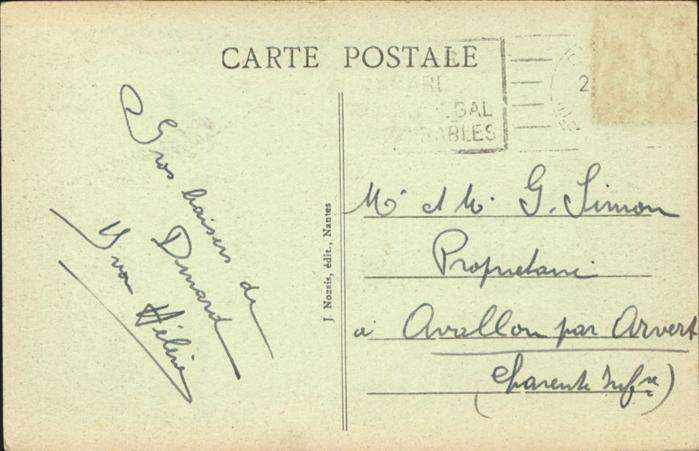 CARTE POSTALE
GAL
ABLES
2
Gros baisers de
Dinard
Yvon Hélène
J Nozais, édit., Nantes
Mr et Me G. Simon
Propriétaire
à Avallon par Arvert
(Charente Infre)